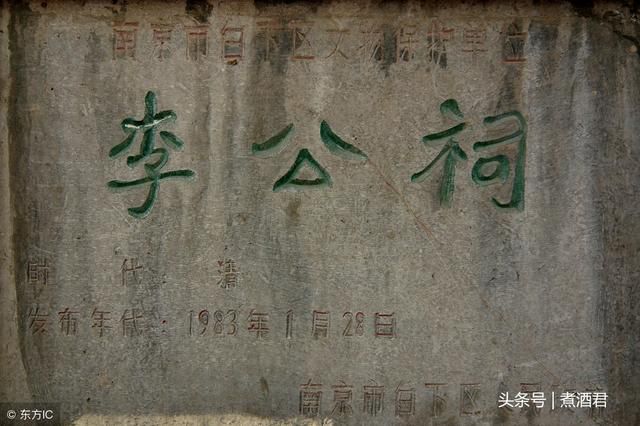 南京市白下区文物保护单位
李公祠
时 代：清
发布年代：1983年1月28日
南京市白下区
头条号 | 煮酒君
© 东方IC